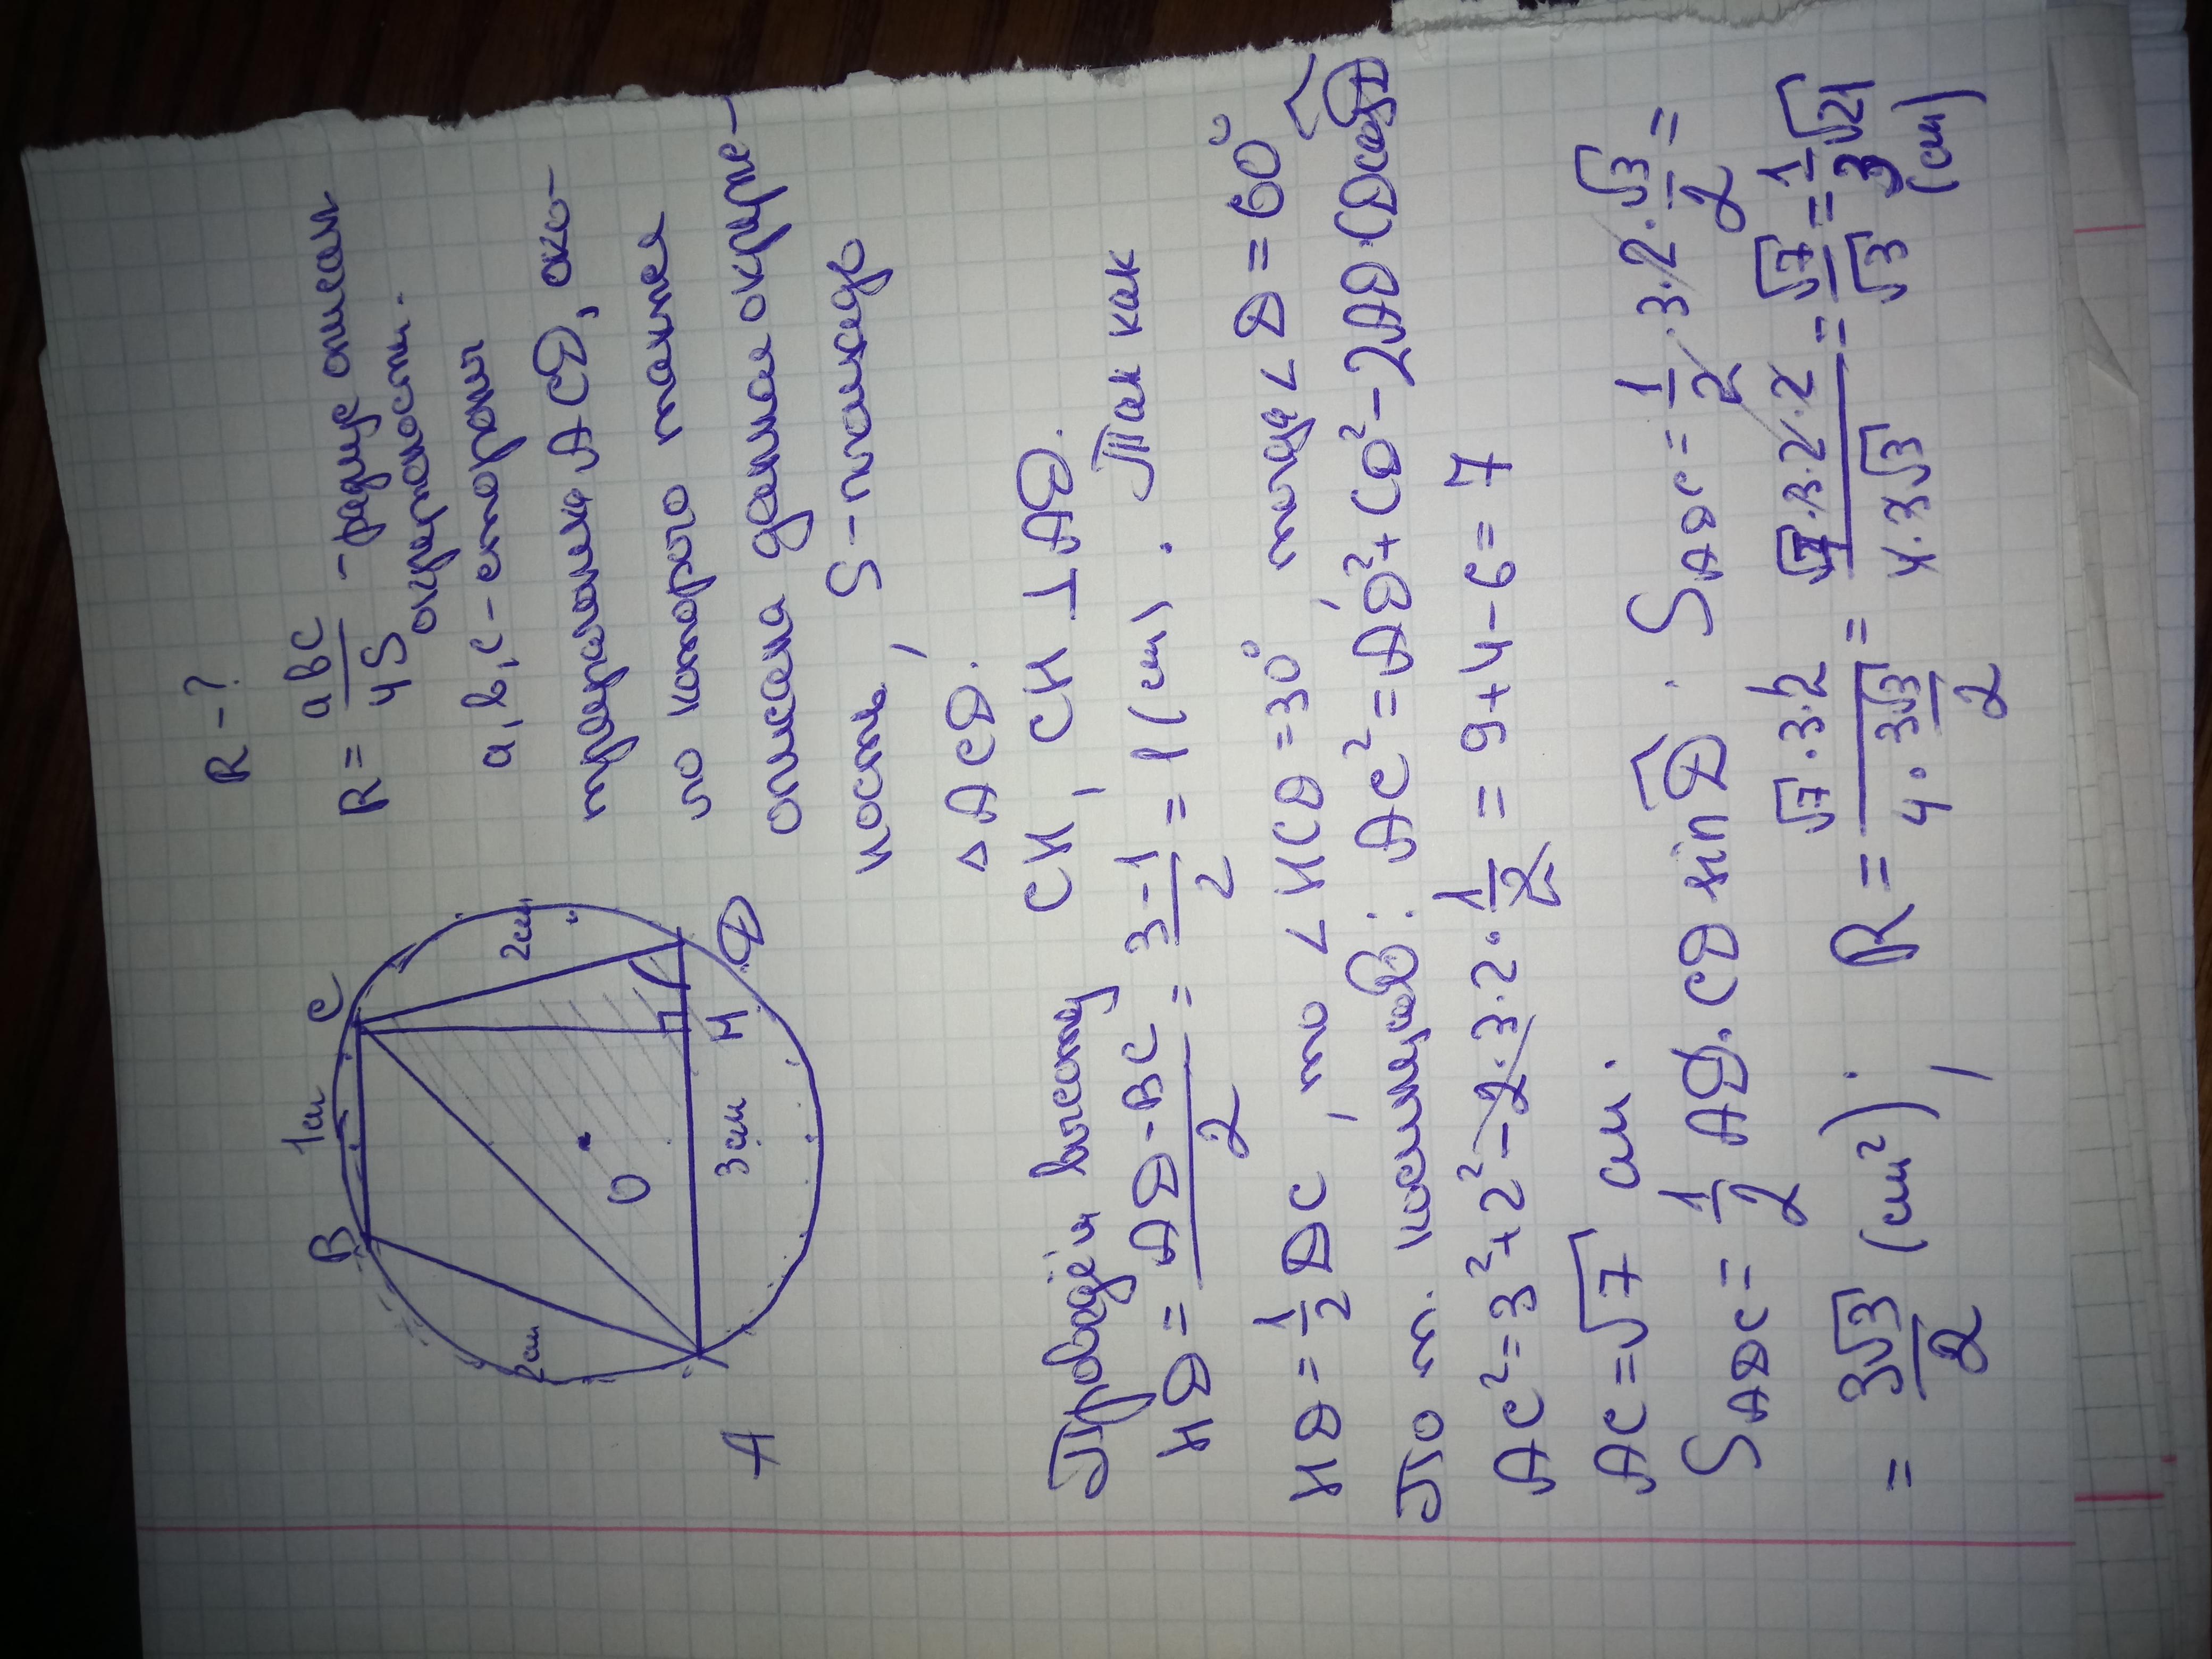 B 1см C
2см
2см
O
A 3см H D
R - ?
R = abc/4S - радиус описан
окружности.
a, b, c - стороны
треугольника ACD, око-
ло которого также
описана данная окруж-
ность, S - площадь
△ ACD.
Проведём высоту CH, CH ⊥ AD.
HD = (AD - BC)/2 = (3 - 1)/2 = 1 (см). Так как
HD = 1/2 DC, то ∠ HCD = 30°, тогда ∠ D = 60°
По т. косинусов: AC² = AD² + CD² - 2AD·CD cos D
AC² = 3² + 2² - 2·3·2·1/2 = 9 + 4 - 6 = 7
AC = √7 см.
S ADC = 1/2 AD·CD sin D. S ADC = 1/2·3·2·√3/2 =
= 3√3/2 (см²). R = √7·3·2/(4·3√3/2) = √7·3·2·2/(4·3√3) = √7/√3 = 1/3 √21
(см)